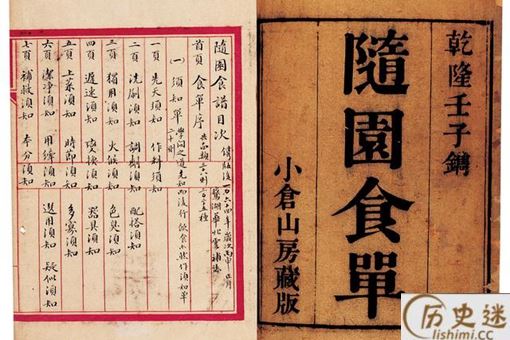 乾隆壬子鐫
隨園食單
小倉山房藏版
隨園食譜目次
首頁 食單序
(一) 須知單 二十則 學問之道先知而後行飲食亦然作須知單
一頁 先天須知 作料須知
二頁 洗刷須知 調劑須知 配搭須知
三頁 獨用須知 火候須知 色臭須知
四頁 遲速須知 變換須知 器具須知
五頁 上菜須知 時節須知 多寡須知
六頁 潔淨須知 用縴須知 選用須知 疑似須知
七頁 補救須知 本分須知
历史迷
lishimi.cc